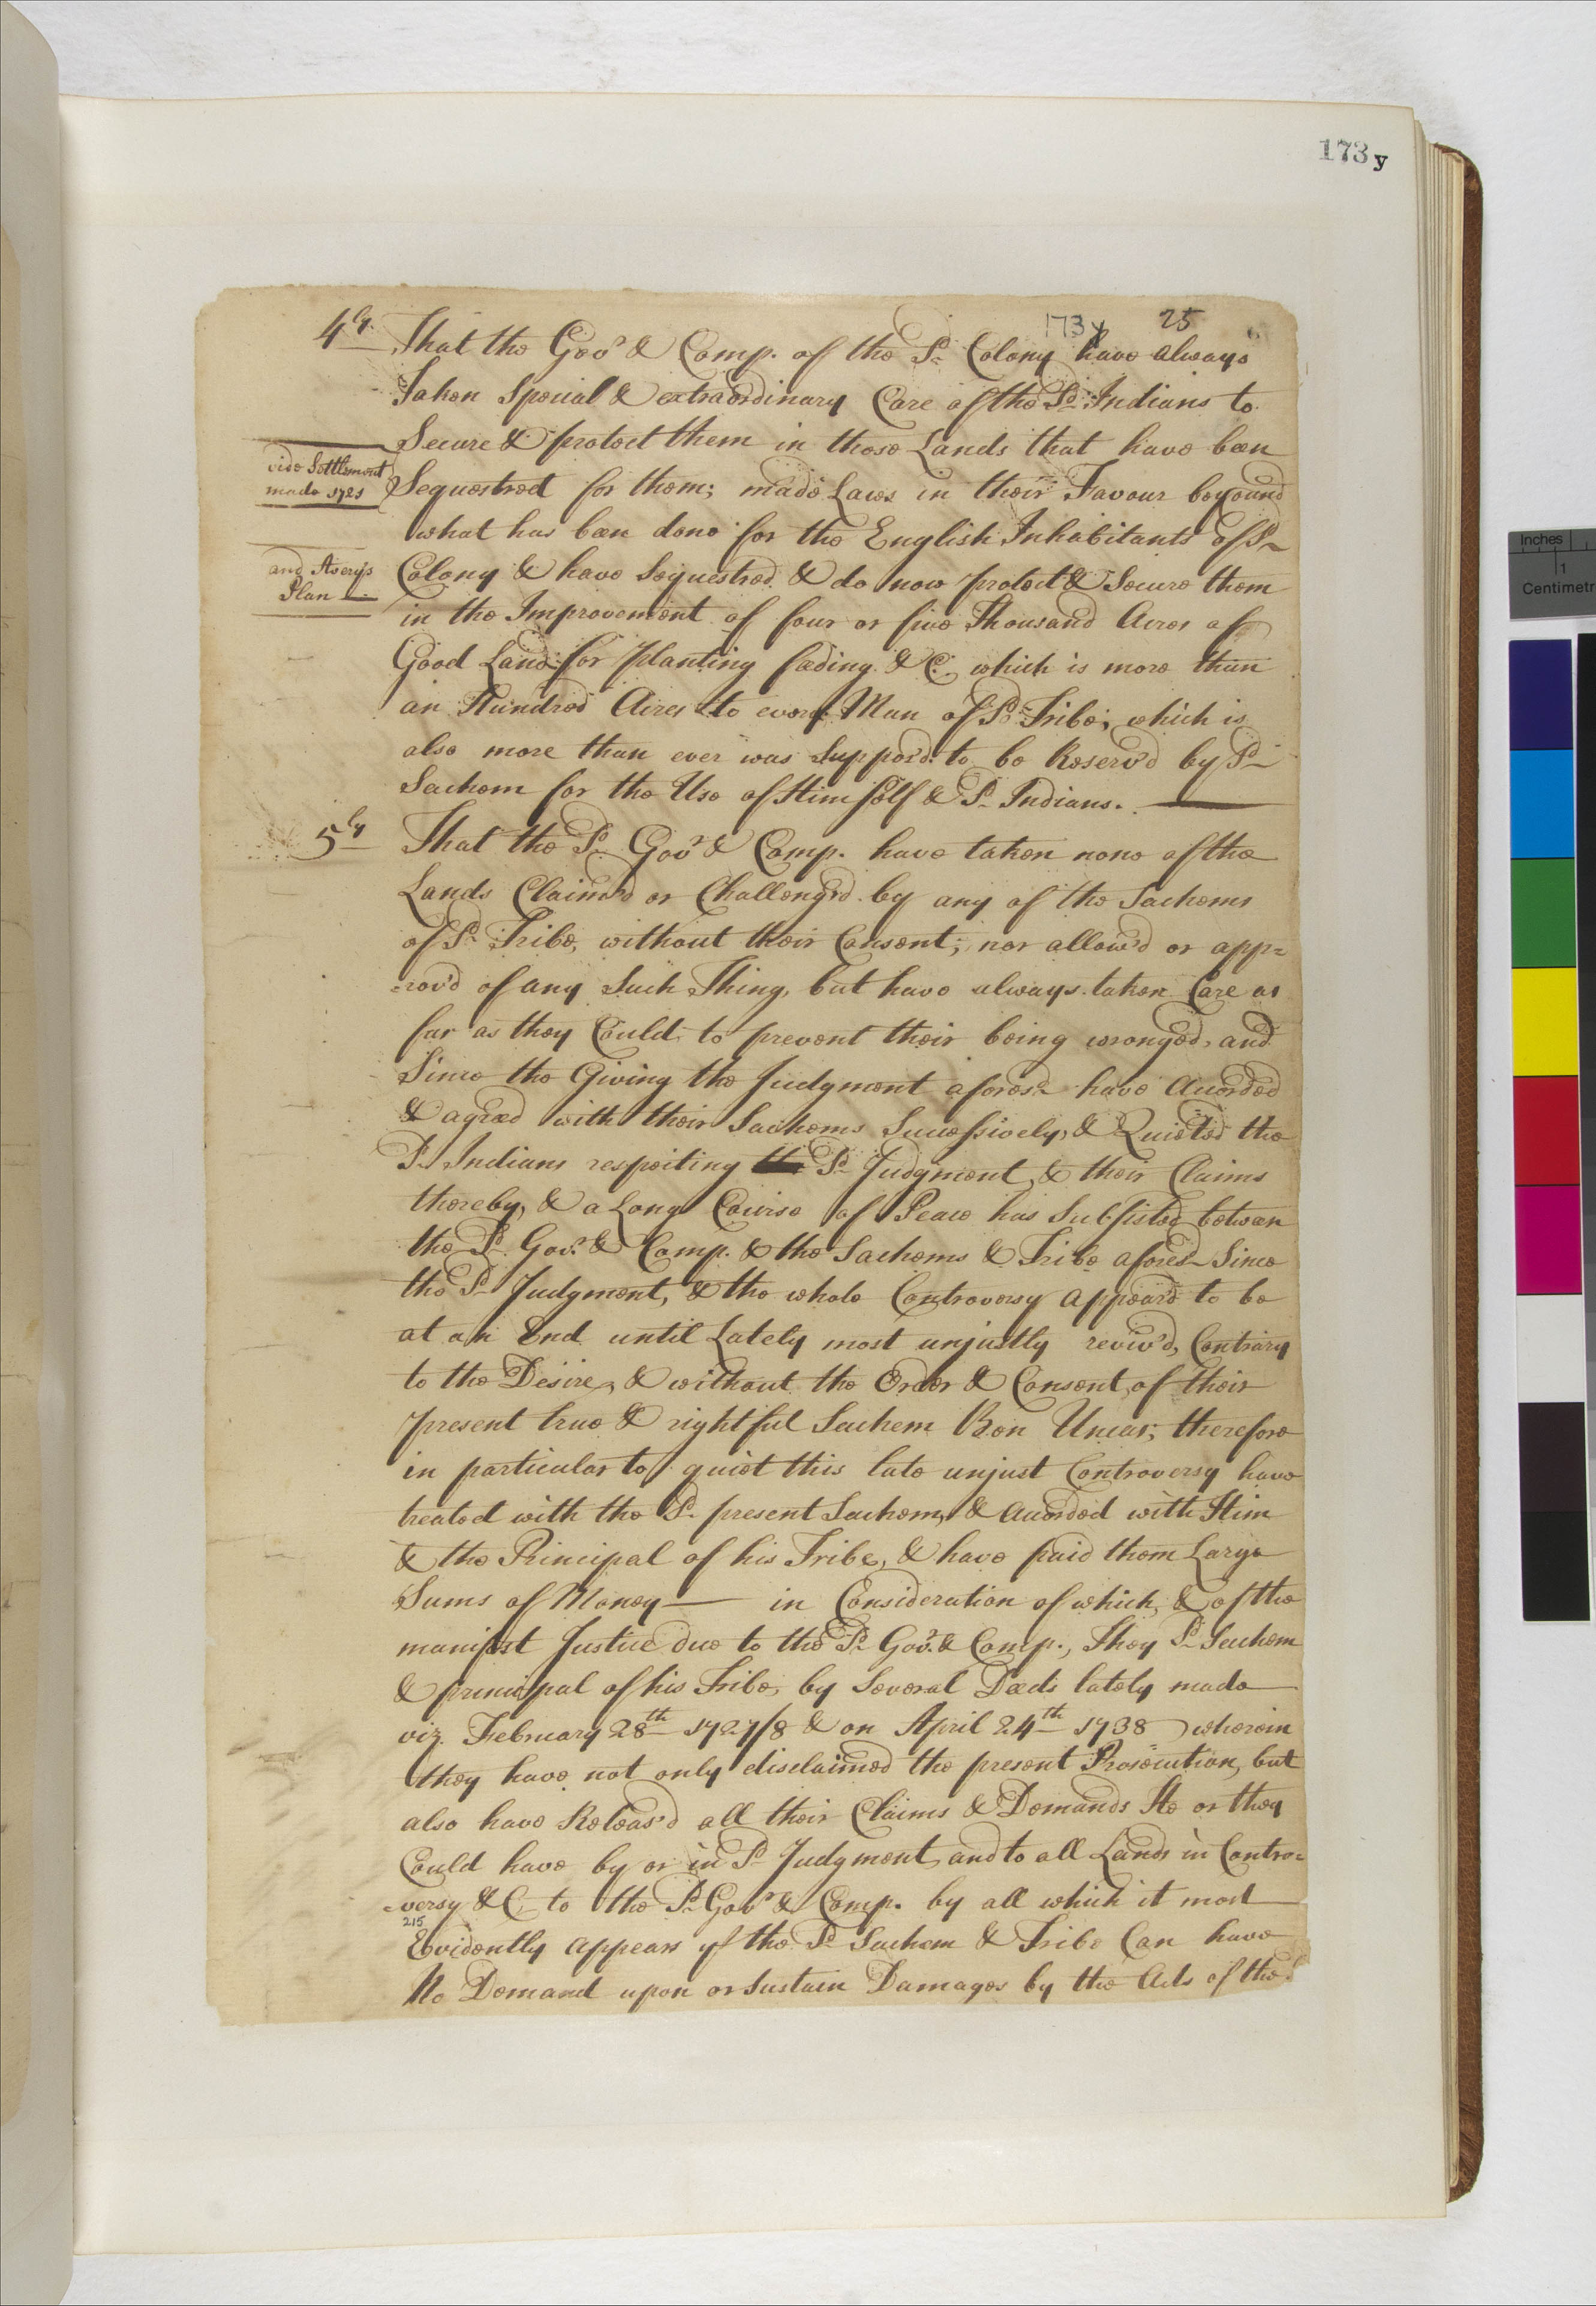 173 y
173 y 25
4ly That the Govr & Comp. of the Sd Colony have always
Taken Special & extraordinary Care of the Sd Indians to
Secure & protect them in those Lands that have been
vide Settlement
made 1721
Sequestred for them; made Laws in their Favour beyound
what has been done for the English Inhabitants of Sd
and Averys
Plan
Colony & have Sequestred & do now protect & Secure them
in the Improvement of four or five Thousand Acres of
Good Land for planting feeding &C. which is more than
an Hundred Acres to every Man of Sd Tribe; which is
also more than ever was Suppos'd to be Reserv'd by Sd
Sachem for the Use of Himself & Sd Indians.
5ly That the Sd Govr & Comp. have taken none of the
Lands Claim'd or Challeng'd by any of the Sachems
of Sd Tribe, without their Consent; nor allow'd or app=
=rov'd of any Such Thing, but have always taken Care as
far as they Could to prevent their being wronged, and
Since the Giving the Judgment aforesd have Accorded
& agreed with their Sachems Successively, & Quieted the
Sd Indians respecting the Sd Judgment & their Claims
thereby, & a Long Course of Peace has Subsisted between
the Sd Govr & Comp. & the Sachems & Tribe aforesd Since
the Sd Judgment, & the whole Controversy appear'd to be
at an End until Lately most unjustly reviv'd, Contrary
to the Desire, & without the Order & Consent of their
present true & rightful Sachem Ben Uncas; therefore
in particular to quiet this late unjust Controversy have
treated with the Sd present Sachem, & Accorded with Him
& the Principal of his Tribe, & have paid them Large
Sums of Money — in Consideration of which, & of the
manifest Justice due to the Sd Govr & Comp., They Sd Sachem
& principal of his Tribe, by Several Deeds lately made
viz. February 28th 1727/8 & on April 24th 1738 wherein
they have not only disclaimed the present Prosecution, but
also have Releas'd all their Claims & Demands He or they
Could have by or in Sd Judgment, and to all Lands in Contro=
=versy &C to the Sd Govr & Comp. by all which it most
215
Evidently appears yt the Sd Sachem & Tribe Can have
No Demand upon or Sustain Damages by the Acts of the
Inches
1
Centimetr